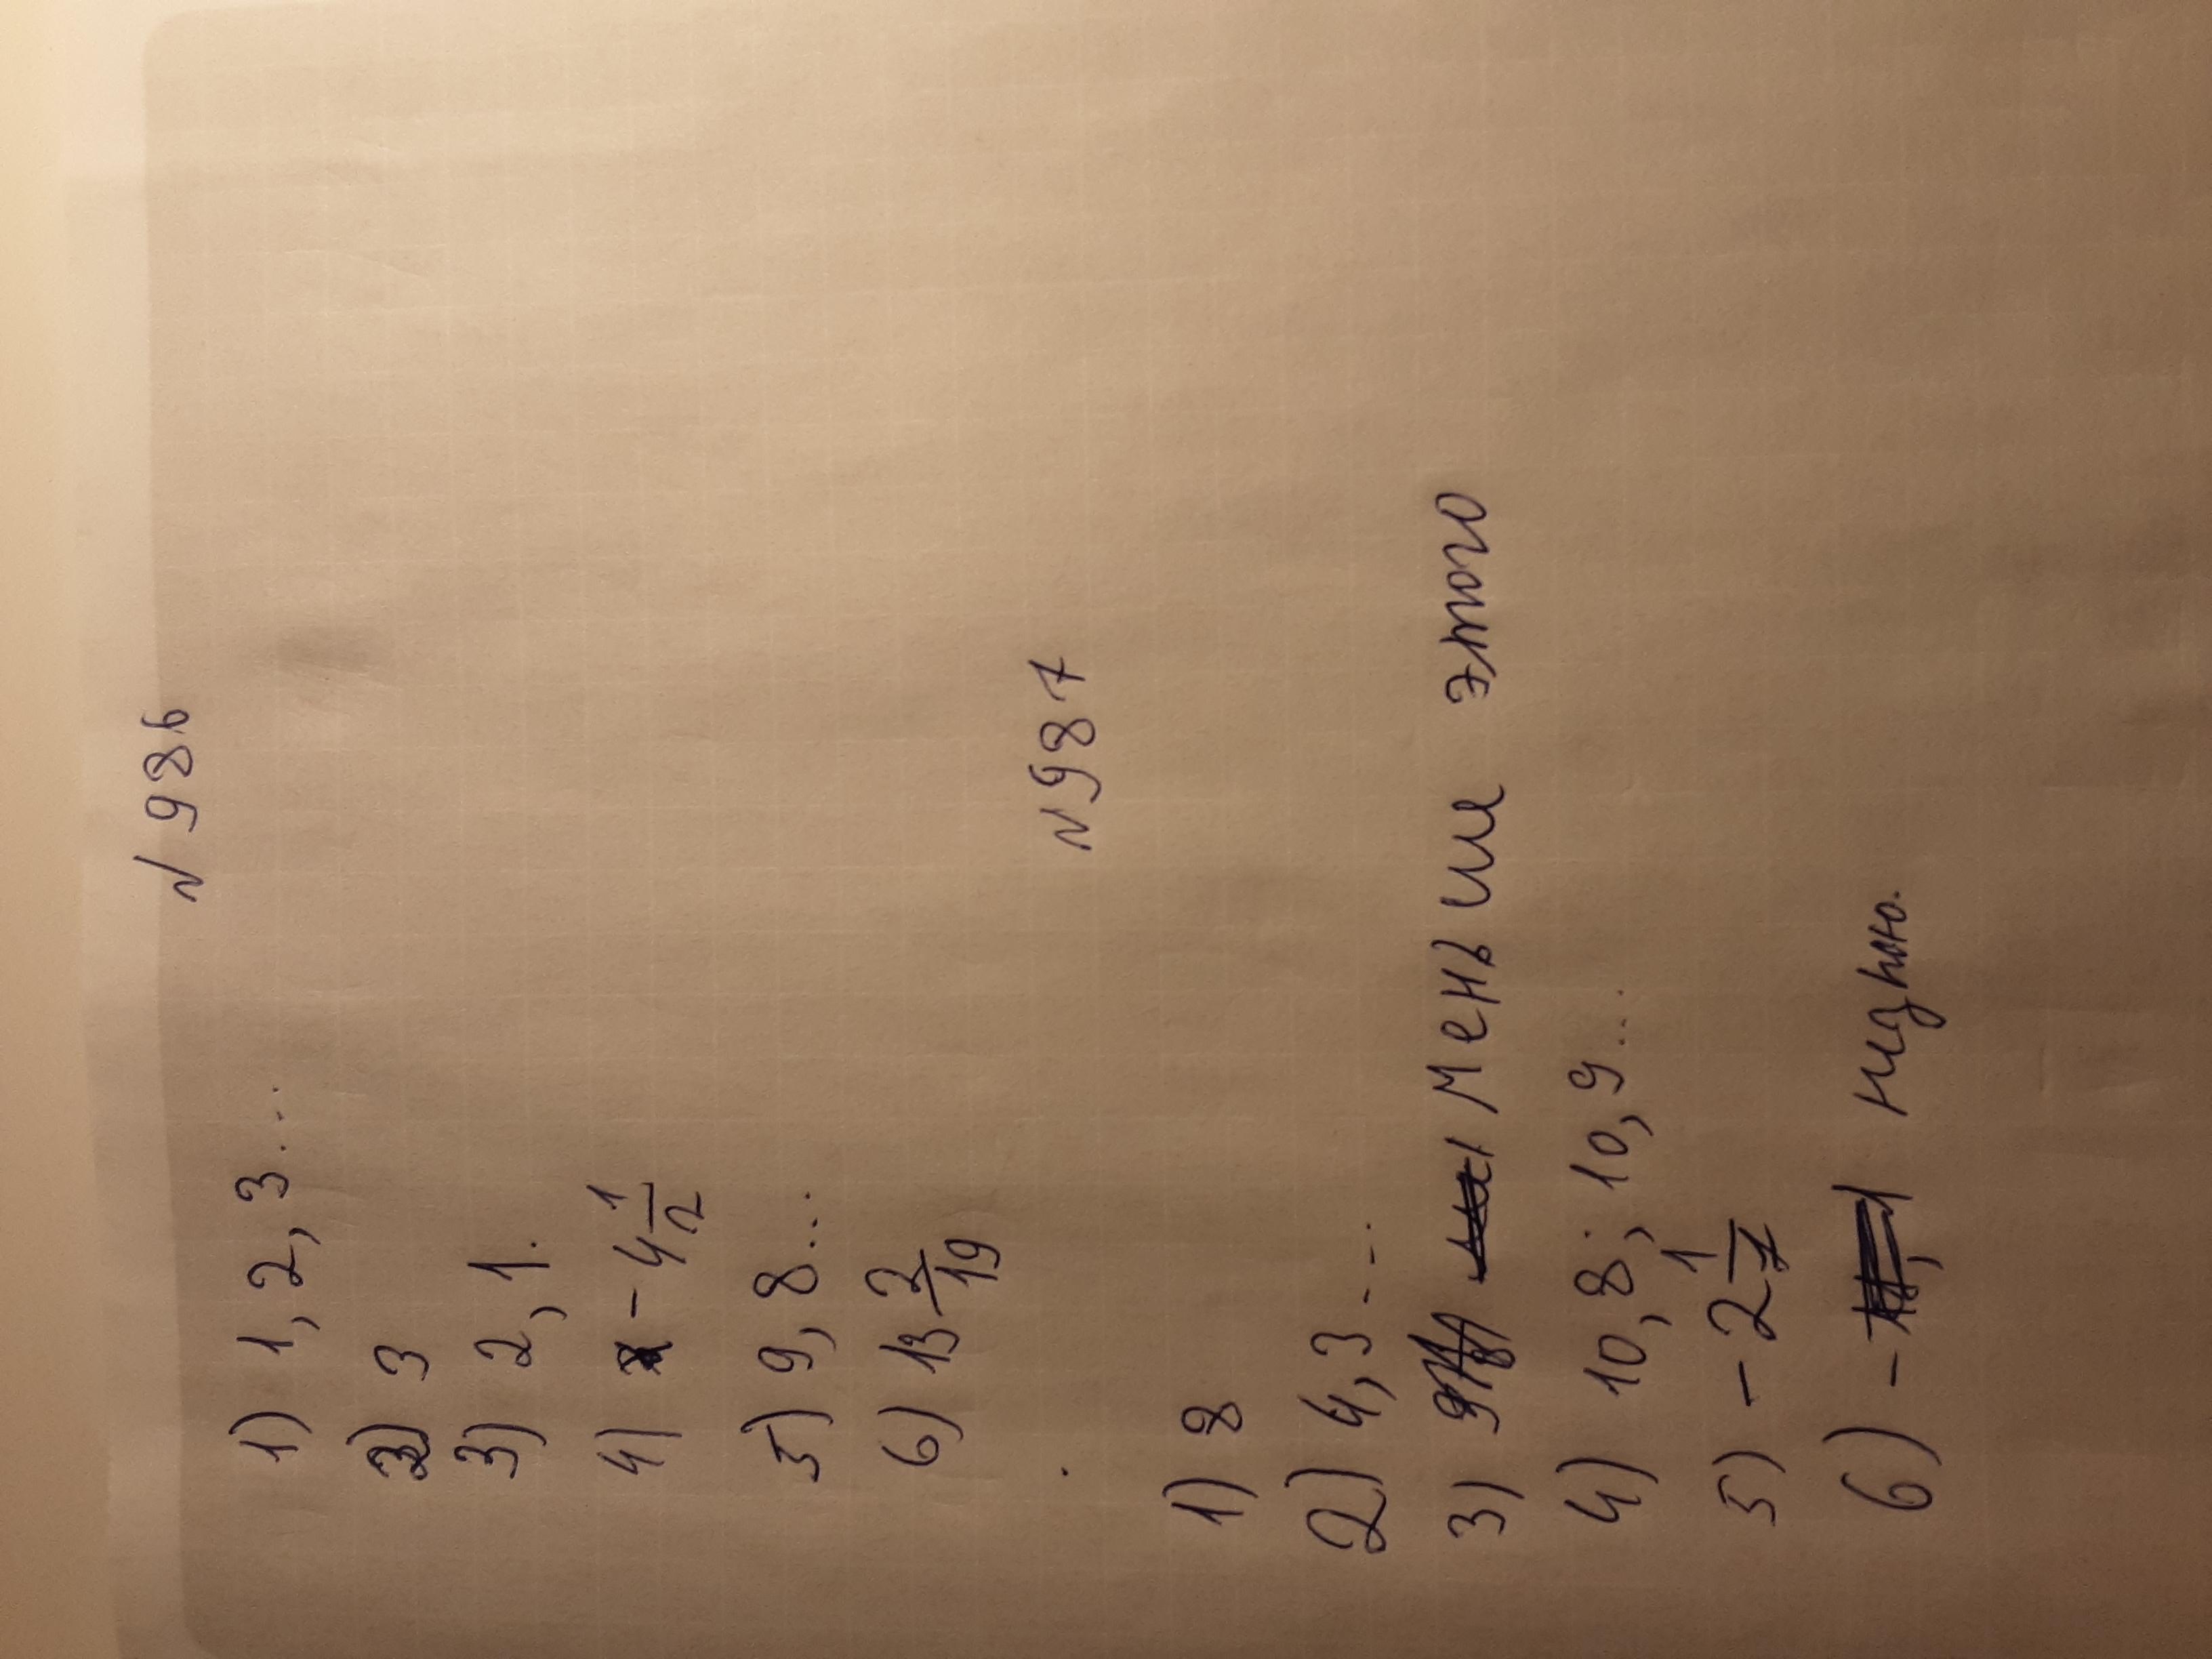 N 986
1) 1, 2, 3...
2) 3
3) 2, 1.
4) - 4 1/2
5) 9, 8...
6) 13 2/19
N 987
1) 8
2) 4, 3...
3) Меньше этого
4) 10,8; 10,9...
5) - 2 1/7
6) -